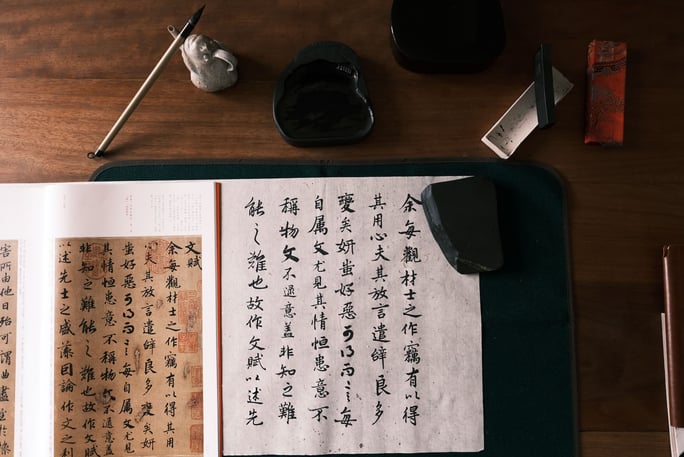 余每觀材士之作竊有以得
其用心夫其放言遣辭良多
變矣妍蚩好惡可得而言每
自属文尤見其情恒患意不
稱物文不逮意盖非知之難
能之難也故作文賦以述先
文賦
余每觀材士之作竊有以得其用
心夫其放言遣辭良多變矣妍
蚩好惡可得而言每自属文
尤見其情恒患意不稱物文不逮意盖
非知之難能之難也故作文賦
以述先士之盛藻因論作文之利
害所由他日殆可謂曲盡